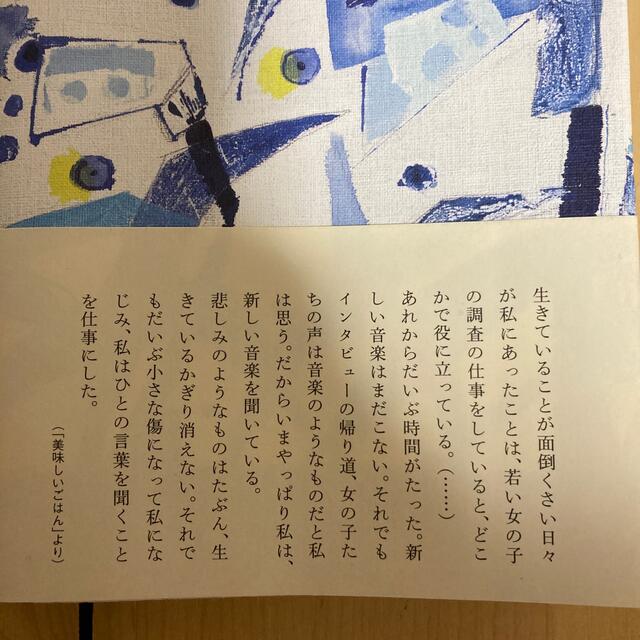 生きていることが面倒くさい日々
が私にあったことは、若い女の子
の調査の仕事をしていると、どこ
かで役に立っている。（……）
あれからだいぶ時間がたった。新
しい音楽はまだこない。それでも
インタビューの帰り道、女の子た
ちの声は音楽のようなものだと私
は思う。だからいまやっぱり私は、
新しい音楽を聞いている。
悲しみのようなものはたぶん、生
きているかぎり消えない。それで
もだいぶ小さな傷になって私にな
じみ、私はひとの言葉を聞くこと
を仕事にした。
（「美味しいごはん」より）